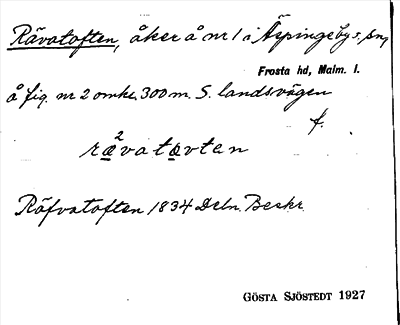 Rävatoften, åker å nr 1 i Äspinge by s. sn,
Frosta hd, Malm. l.
å fig. nr 2 omkr. 300 m. S. landsvägen
f.
2
rävatovten
Räfvatoften 1834 Deln. Beskr.
GÖSTA SJÖSTEDT 1927